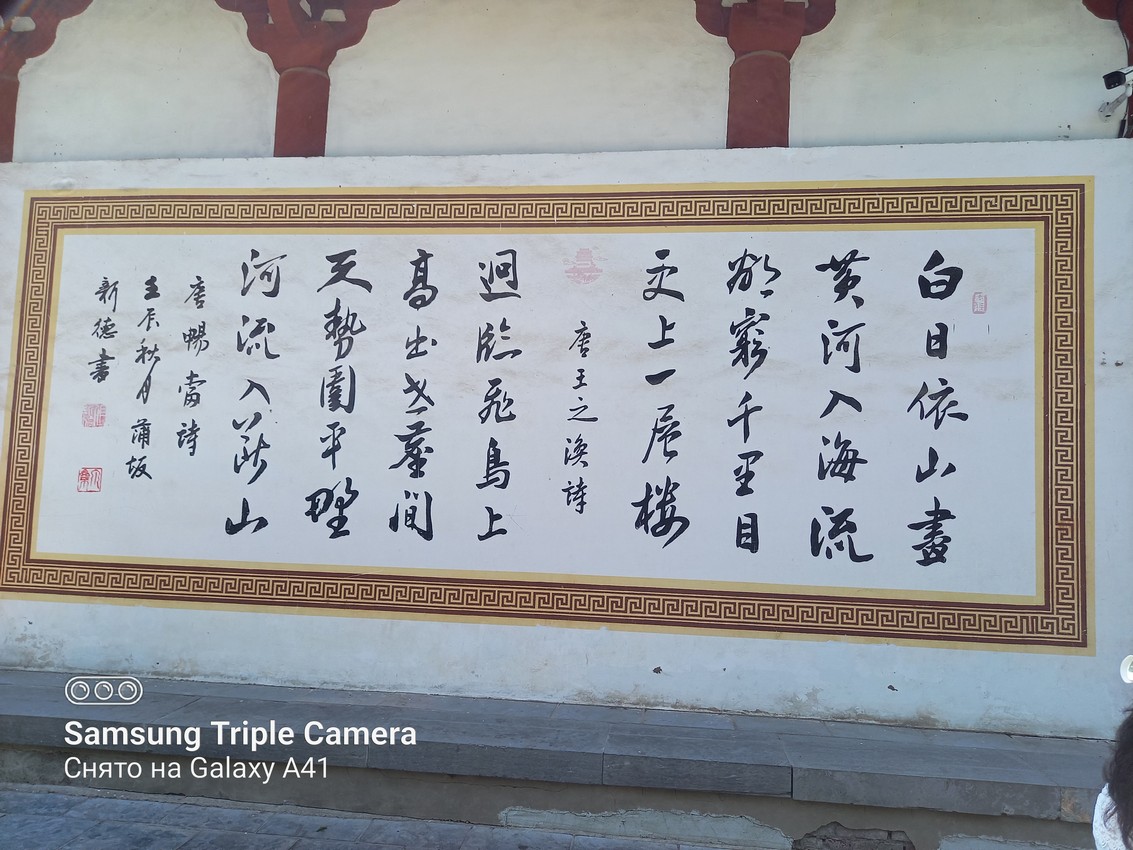 白日依山盡
黄河入海流
欲窮千里目
更上一层楼
唐王之渙詩
迥臨飛鳥上
髙出世塵間
天勢圍平野
河流入斷山
唐暢當詩
壬辰秋月蒲坂
新德書
Samsung Triple Camera
Снято на Galaxy A41